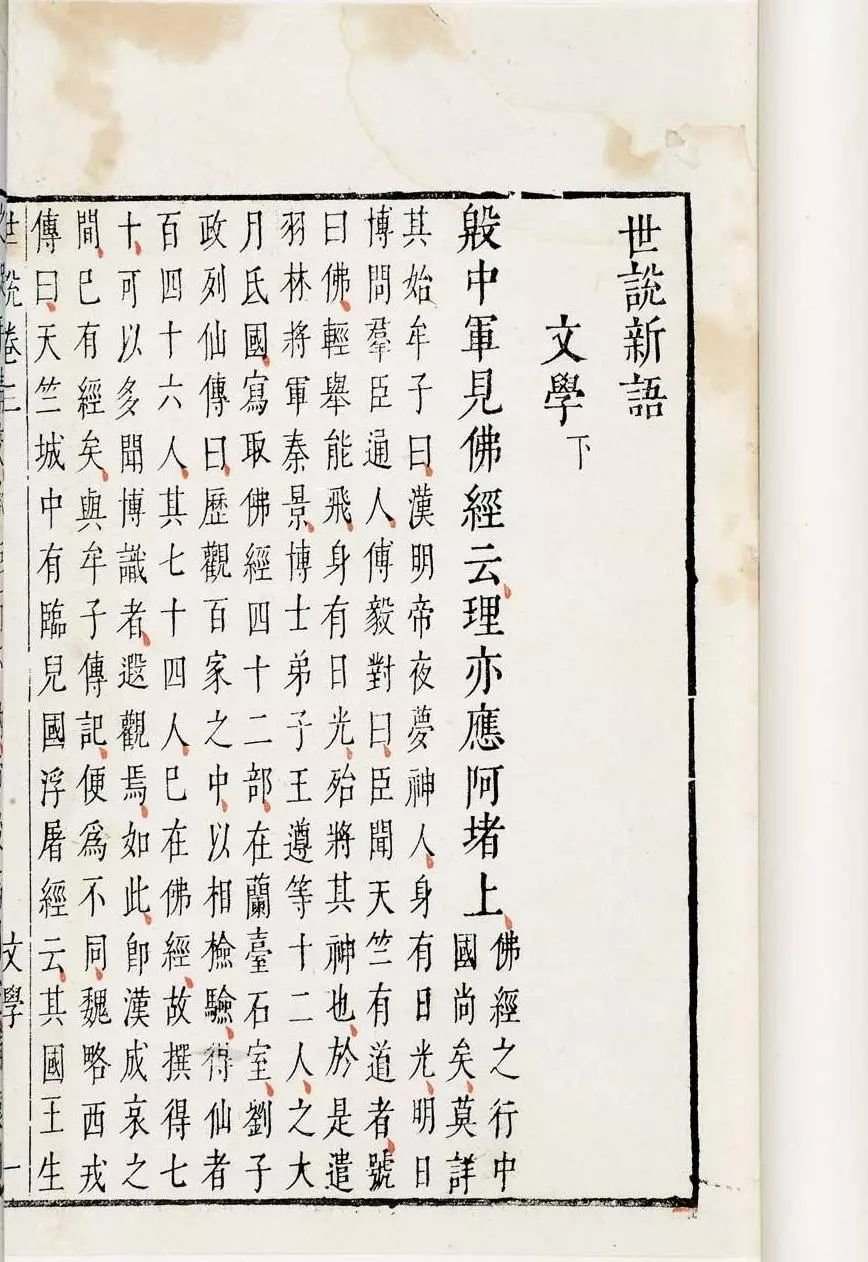 世說新語
文學下
殷中軍見佛經云理亦應阿堵上佛經之行中
國尚矣莫詳
其始牟子曰漢明帝夜夢神人身有日光明日
博問羣臣通人傅毅對曰臣聞天竺有道者號
曰佛輕舉能飛身有日光殆將其神也於是遣
羽林將軍秦景博士弟子王遵等十二人之大
月氏國寫取佛經四十二部在蘭臺石室劉子
政列仙傳曰歷觀百家之中以相檢驗得仙者
百四十六人其七十四人已在佛經故撰得七
十可以多聞博識者遐觀焉如此即漢成哀之
間已有經矣與牟子傳記便爲不同魏略西戎
傳曰天竺城中有臨兒國浮屠經云其國王生
世說卷二 文學 一